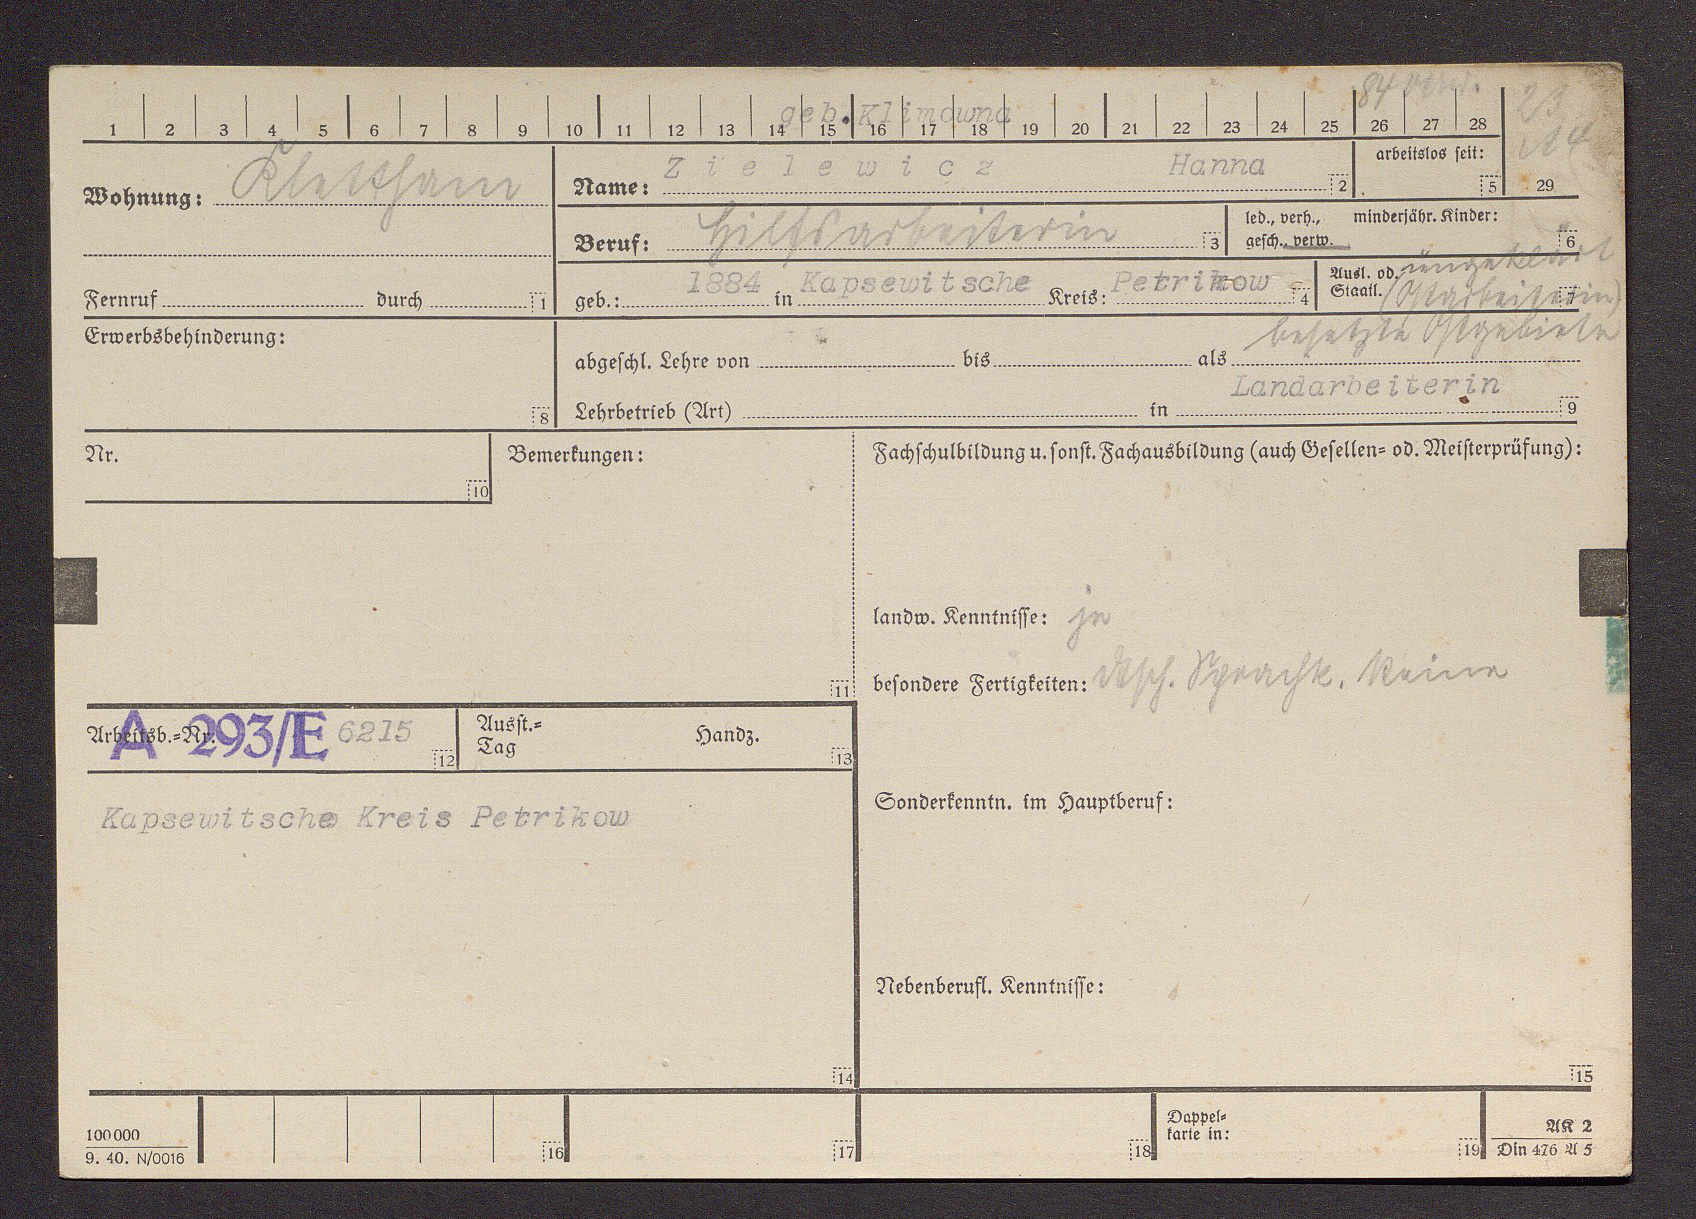 84 verw.
geb. Klimowna
1 2 3 4 5 6 7 8 9 10 11 12 13 14 15 16 17 18 19 20 21 22 23 24 25 26 27 28
23
Wohnung: Klettham
Name: Zielewicz Hanna 2
arbeitslos seit: 5
29
Beruf: Hilfsarbeiterin 3
led., verh., minderjähr. Kinder:
gesch., verw. 6
Fernruf durch 1
geb.: 1884 in Kapsewitsche Kreis: Petrikow 4
Ausl. od. ungeklärt
Staatl. (Ostarbeiterin) 7
besetzte Ostgebiete
Erwerbsbehinderung: 8
abgeschl. Lehre von bis als
Landarbeiterin
Lehrbetrieb (Art) in 9
Nr. 10
Bemerkungen: 11
Fachschulbildung u. sonst. Fachausbildung (auch Gesellen= od. Meisterprüfung):
landw. Kenntnisse: ja
besondere Fertigkeiten: dtsch. Sprachk. keine
Arbeitsb.=Nr. A 293/E 6215 12
Ausst.=
Tag Handz. 13
Kapsewitsche Kreis Petrikow
14
Sonderkenntn. im Hauptberuf:
Nebenberufl. Kenntnisse:
15
100000
9. 40. N/0016
16 17 18
Doppel=
karte in: 19
AK 2
Din 476 A 5